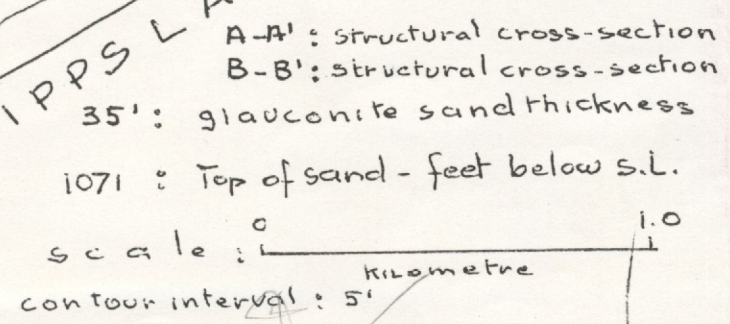 A-A' : structural cross-section
B-B' : structural cross-section
IPPSL
35' : glauconite sand thickness
1071 : Top of sand - feet below s.L.
0 1.0
scale :
KILometre
contour interval : 5'